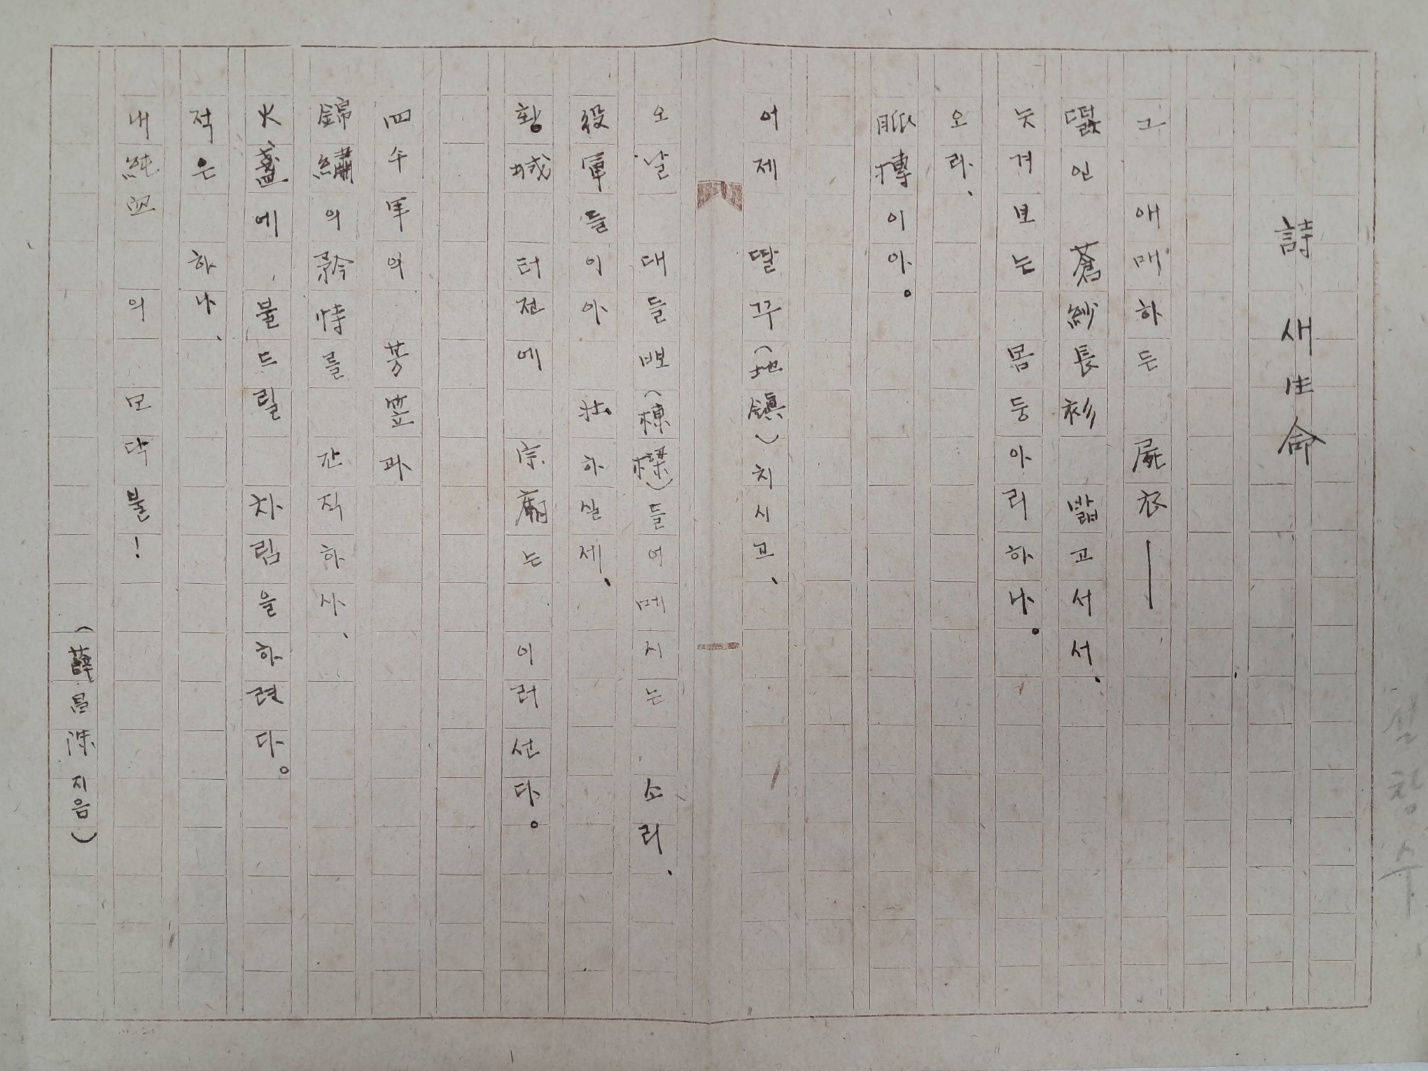 詩 새生命
그 애매하든 屍衣—
떫인 蒼紗長衫 밟고서서、
눗겨보는 몸둥아리하나。
오라、
脈搏이아。
어제 딸꾸(地鎭)치시고、
오날 대들뽀(棟樑)들어메시는 소리、
役軍들이아 壯하실제、
황城 터전에 宗廟는 이러선다。
四千年의 芳笠과
錦繡의 矜恃를 간직하사、
火盞에 불드릴 차림을하련다。
적은 하나、
내純血의 모닥불!
(薛昌洙지음)
설창수